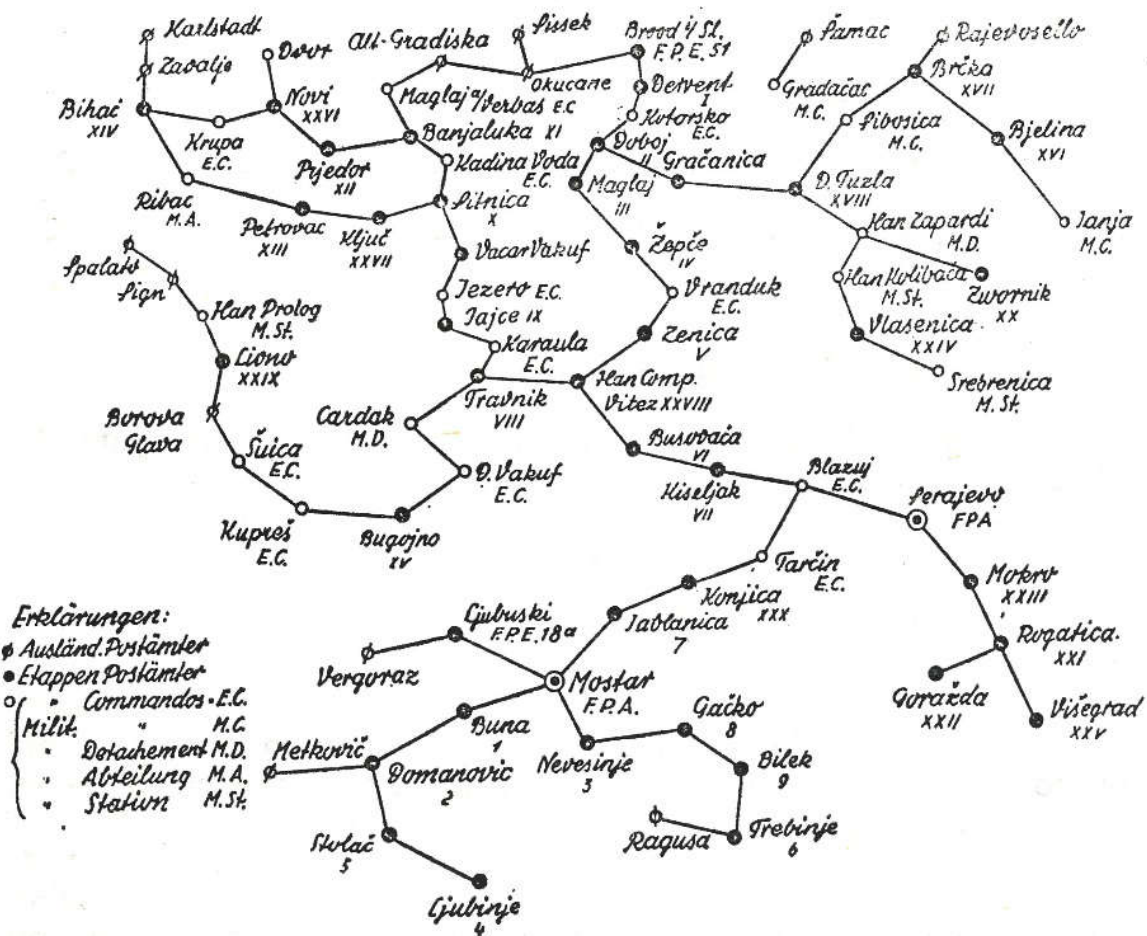 Karlstadt
Zavalje
Bihać
XIV
Dvor
Novi
XXVI
Krupa
E.C.
Prjedor
XII
Ribac
M.A.
Petrovac
XIII
Ključ
XXVII
Alt-Gradiska
Maglaj a/
Verbas E.C
Banjaluka XI
Kadina Voda
E.C.
Sitnica
X
Vacar Vakuf
Jezero E.C.
Jajce IX
Karaula
E.C.
Travnik
VIII
Sissek
Okucane
Brood i/ Sl.
F.P.E. 51
Dervent
I
Kotorsko
E.C.
Doboj
II
Gračanica
Maglaj
III
Žepče
IV
Vranduk
E.C.
Zenica
V
Han Comp.
Vitez XXVIII
Šamac
Gradačac
M.C.
Rajevosello
Brčka
XVII
Sibosica
M.C.
Bjelina
XVI
Janja
M.C.
D. Tuzla
XVIII
Han Zapardi
M.D.
Han Kolibača
M.St.
Zwornik
XX
Vlasenica
XXIV
Srebrenica
M.St.
Spalato
Sign
Han Prolog
M.St.
Liono
XXIX
Borova
Glava
Šuica
E.C.
Kupreš
E.C.
Bugojno
XV
Cardak
M.D.
D. Vakuf
E.C.
Busovača
VI
Kiseljak
VII
Blazuj
E.C.
Serajevo
FPA
Tarčin
E.C.
Konjica
XXX
Jablanica
7
Mokro
XXIII
Rogatica
XXI
Goražda
XXII
Višegrad
XXV
Ljubuski
F.P.E. 18a
Vergoraz
Mostar
F.P.A.
Buna
1
Metkovič
Domanovic
2
Nevesinje
3
Gačko
8
Bilek
9
Ragusa
Trebinje
6
Stolač
5
Ljubinje
4
Erklärungen:
Ausländ. Postämter
Etappen Postämter
" Commandos E.C.
Milit. " M.C.
" Detachement M.D.
" Abteilung M.A.
" Station M.St.